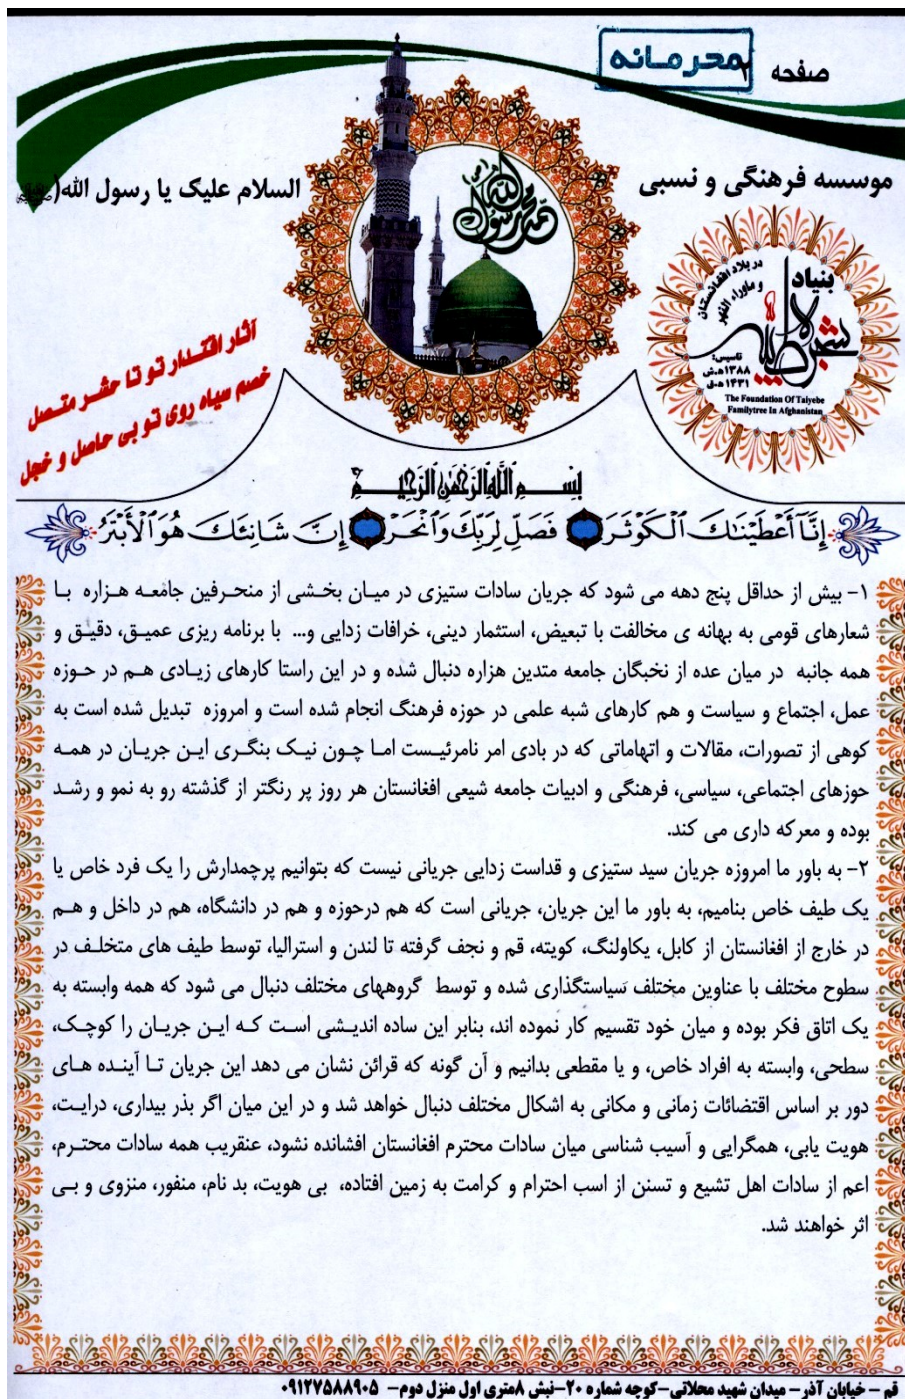 صفحه ۲
محرمانه
موسسه فرهنگی و نسبی
السلام علیک یا رسول الله(
محمد رسول الله
بنیاد
شجره طیبه
در بلاد افغانستان
و ماوراء النهر
تاسیس:
۱۳۸۸ه.ش
۱۴۳۱ه.ق
The Foundation Of Taiyebe
Familytree In Afghanistan
آثار اقتدار تو تا حشر متصل
خصم سیاه روی تو بی حاصل و خجل
بسم الله الرحمن الرحیم
إِنَّآ أَعْطَيْنَٰكَ ٱلْكَوْثَرَ فَصَلِّ لِرَبِّكَ وَٱنْحَرْ إِنَّ شَانِئَكَ هُوَ ٱلْأَبْتَرُ
۱- بیش از حداقل پنج دهه می شود که جریان سادات ستیزی در میان بخشی از منحرفین جامعه هزاره با
شعارهای قومی به بهانه ی مخالفت با تبعیض، استثمار دینی، خرافات زدایی و... با برنامه ریزی عمیق، دقیق و
همه جانبه در میان عده از نخبگان جامعه متدین هزاره دنبال شده و در این راستا کارهای زیادی هم در حوزه
عمل، اجتماع و سیاست و هم کارهای شبه علمی در حوزه فرهنگ انجام شده است و امروزه تبدیل شده است به
کوهی از تصورات، مقالات و اتهاماتی که در بادی امر نامرئیست اما چون نیک بنگری این جریان در همه
حوزهای اجتماعی، سیاسی، فرهنگی و ادبیات جامعه شیعی افغانستان هر روز پر رنگتر از گذشته رو به نمو و رشد
بوده و معرکه داری می کند.
۲- به باور ما امروزه جریان سید ستیزی و قداست زدایی جریانی نیست که بتوانیم پرچمدارش را یک فرد خاص یا
یک طیف خاص بنامیم، به باور ما این جریان، جریانی است که هم درحوزه و هم در دانشگاه، هم در داخل و هم
در خارج از افغانستان از کابل، یکاولنگ، کویته، قم و نجف گرفته تا لندن و استرالیا، توسط طیف های متخلف در
سطوح مختلف با عناوین مختلف سیاستگذاری شده و توسط گروههای مختلف دنبال می شود که همه وابسته به
یک اتاق فکر بوده و میان خود تقسیم کار نموده اند، بنابر این ساده اندیشی است که این جریان را کوچک،
سطحی، وابسته به افراد خاص، و یا مقطعی بدانیم و آن گونه که قرائن نشان می دهد این جریان تا آینده های
دور بر اساس اقتضائات زمانی و مکانی به اشکال مختلف دنبال خواهد شد و در این میان اگر بذر بیداری، درایت،
هویت یابی، همگرایی و آسیب شناسی میان سادات محترم افغانستان افشانده نشود، عنقریب همه سادات محترم،
اعم از سادات اهل تشیع و تسنن از اسب احترام و کرامت به زمین افتاده، بی هویت، بد نام، منفور، منزوی و بی
اثر خواهند شد.
قم - خیابان آذر- میدان شهید محلاتی-کوچه شماره ۲۰-نبش ۸متری اول منزل دوم- ۰۹۱۲۷۵۸۸۹۰۵